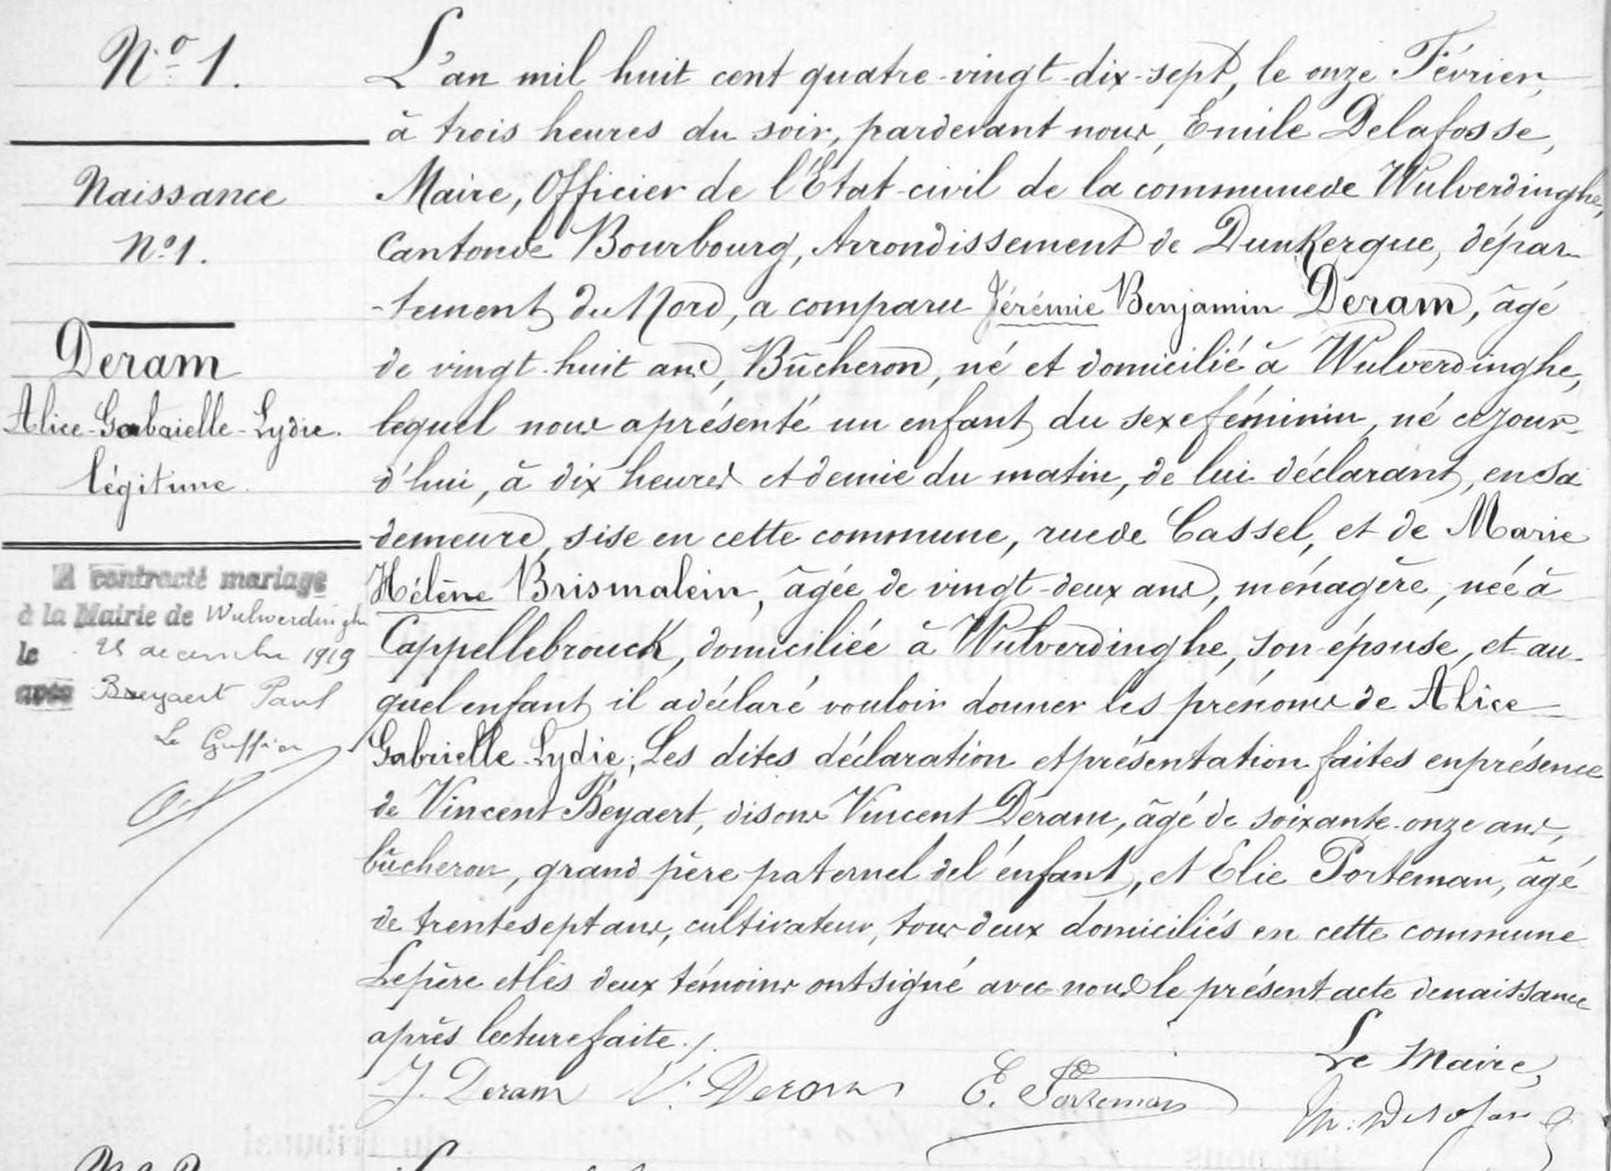 N.º 1.
Naissance
Nº 1.
Deram
Alice-Gabrielle-Lydie.
légitime.
A contracté mariage
à la Mairie de Wulverdinghe
le décembre 1919
avec Beyaert Paul
Le Greffier
L'an mil huit cent quatre-vingt-dix-sept, le onze Février,
à trois heures du soir, pardevant nous, Emile Delafosse,
Maire, Officier de l'État-civil de la commune de Wulverdinghe,
Canton de Bourbourg, Arrondissement de Dunkerque, dépar-
-tement du Nord, a comparu Jérémie Benjamin Deram, âgé
de vingt-huit ans, Bûcheron, né et domicilié à Wulverdinghe,
lequel nous a présenté un enfant du sexe féminin, né ce jour-
d'hui, à dix heures et demie du matin, de lui déclarant, en sa
demeure, sise en cette commune, rue de Cassel, et de Marie
Hélène Brismalein, âgée de vingt-deux ans, ménagère, née à
Cappellebrouck, domiciliée à Wulverdinghe, son épouse, et au-
quel enfant il a déclaré vouloir donner les prénoms de Alice
Gabrielle-Lydie; Les dites déclaration et présentation faites en présence
de Vincent Beyaert, disons Vincent Deram, âgé de soixante-onze ans,
bûcheron, grand père paternel de l'enfant, et Elie Porteman, âgé
de trente sept ans, cultivateur, tous deux domiciliés en cette commune
Le père et les deux témoins ont signé avec nous le présent acte de naissance
après lecture faite./.
Le Maire,
J. Deram V. Deram E. Porteman